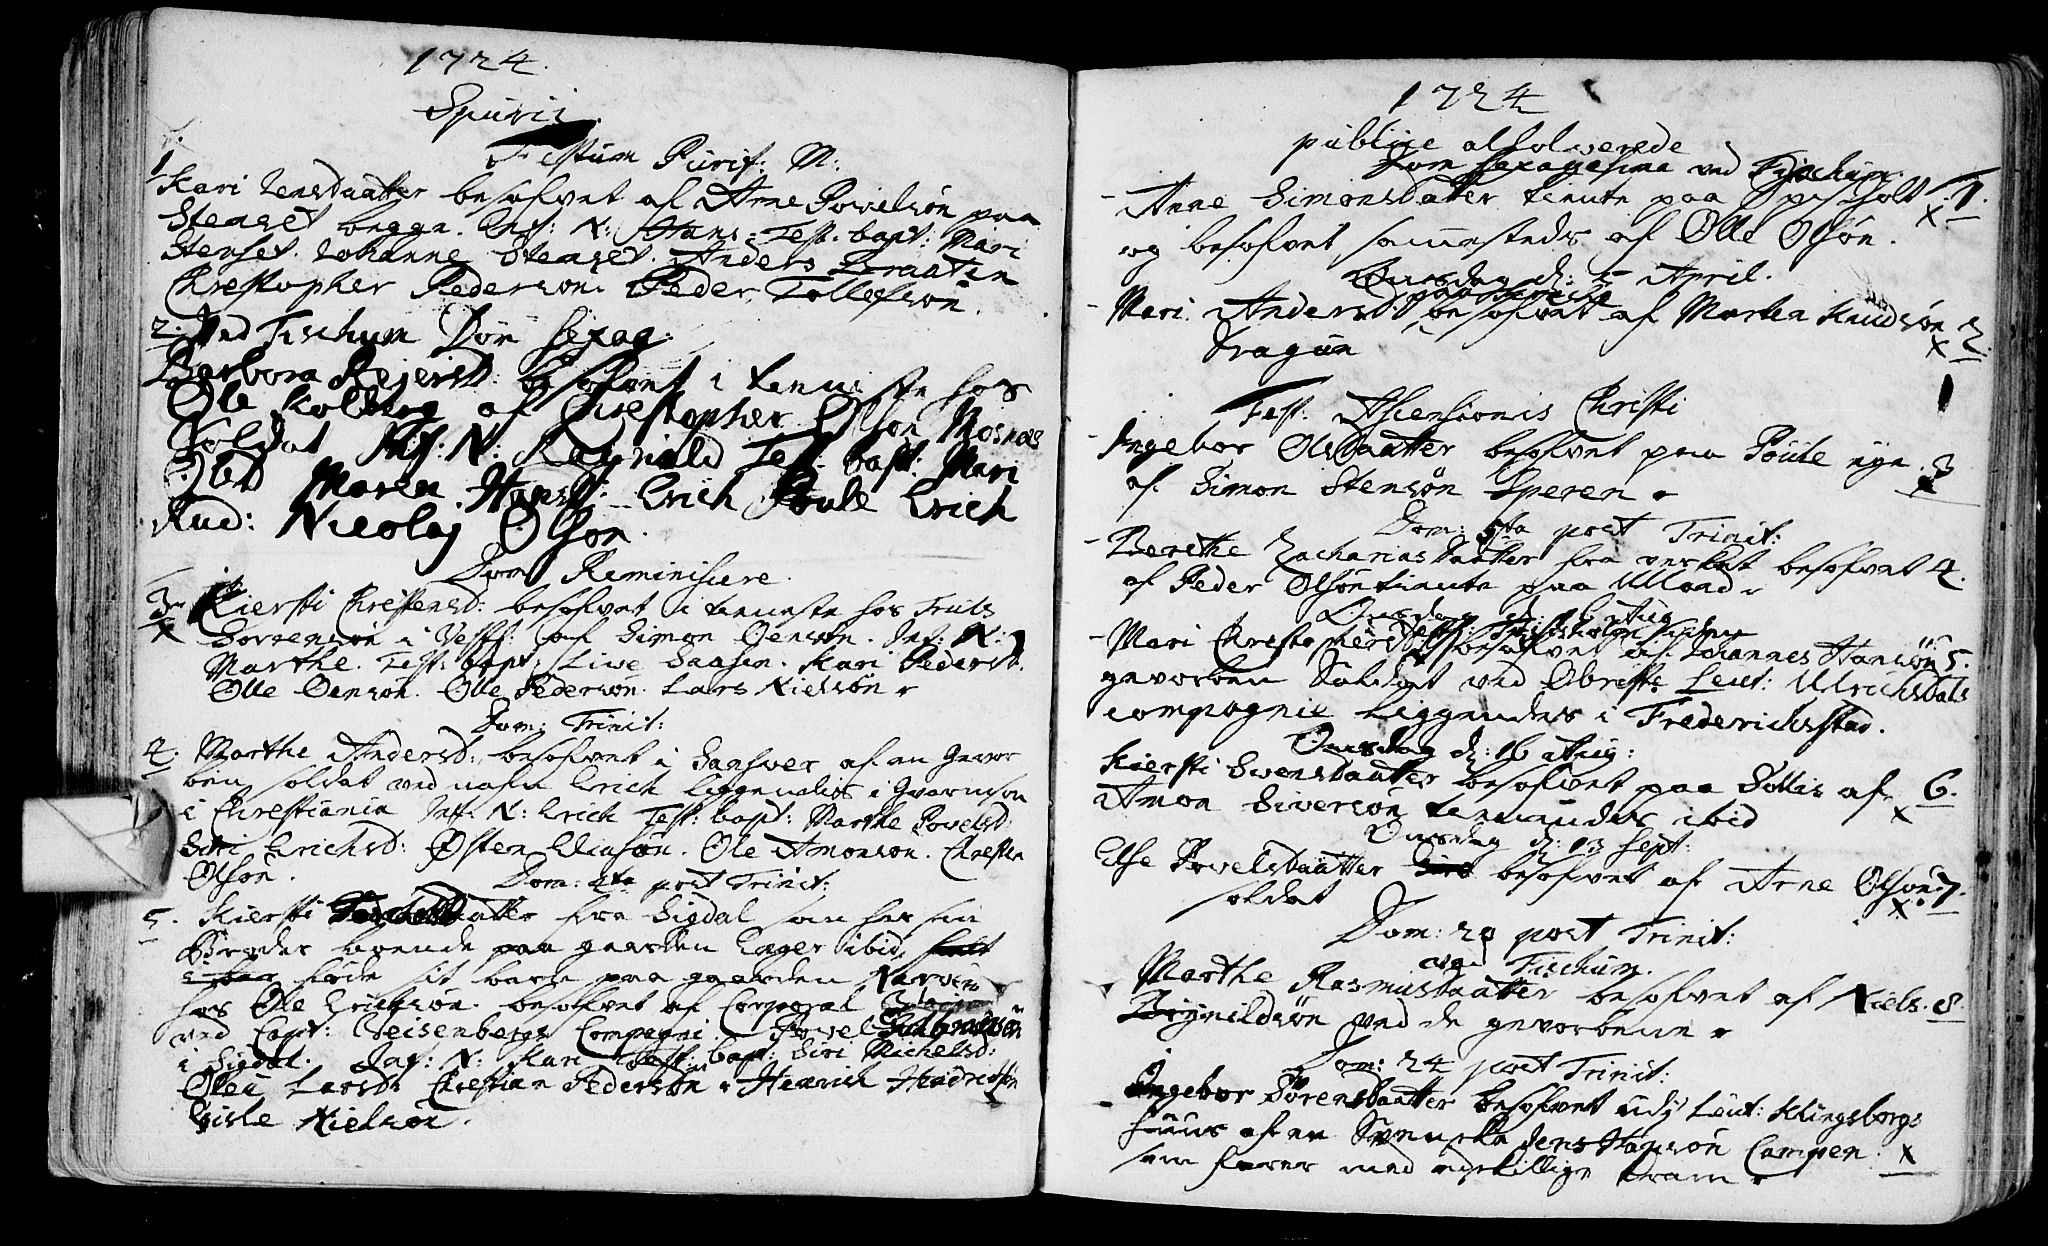 1724.
Spurii.
Festum Purif: M:
1. Kari Jensdaatter besofvet af Arne Povelsøn paa
Stenset begge. Inf: N: Hans: Test. bapt: Mari
Stenset. Johanne Stenset. Anders Braaten
Chrestopher Pedersøn. Peder Tollefsøn.
2. Ved Fischum Dom Sexag:
Barbora Rejersd: besofvet i tenneste hos
Ole Kolberg af Chrestopher Olsøn Mosnæs
Soldat Inf: N: Ragnild Test: bapt: Mari
Maren Hansd: Erich Erich
Rud: Nicolaj Olsøn.
Dom Reminiscere.
3. Kiersti Christensd: besofvet i tenneste hos Truls
Sørrensøn i Vestf: af Simon Jensøn. Inf: N:
Marthe. Test: bapt: Live Saasen. Kari Pedersd.
Olle Jensøn. Olle Pedersøn. Lars Nielsøn
Dom: Trinit:
4. Marthe Andersd: besofvet i af en Gevor
ben soldat ved nafn Erich liggendis i Gvarnison
i Chrestiania Inf: N: Erich Test: bapt: Marthe Povelsd:
Siri Erichsd: Østen Ole Amonsøn. Chresten
Olsøn.
Dom: 4ta post Trinit:
5. Kiersti fra Sigdal som har sin
Broder boende paa gaarden Enger ibid,
føde sit barn paa gaarden
hos Ole Erichsøn. besofvet af Corporal
ved Capt: Compagni Povel
i Sigdal. Inf: N: Kari Test: bapt: Siri Michelsd:
Larsd: Chrestian Pedersøn Henrich Hendrichsøn
Gisle Nielsøn.
1724
publice absolverede
Dom Sexagesima ved Fischum
Anne Simonsdaatter tiente paa 1.
og besofvet sammesteds af Olle Olsøn.
Onsdag d: 5 April.
Mari Andersd: besofvet af Morten Knudsøn 2.
Dragun
Fest: Ascensionis Christi
Ingebor Olsdaatter besofvet paa eye. 3
af Simon Stensøn Speren
Dom: 5ta post Trinit:
Berethe Zachariasdaatter fra verket besofvet 4.
af Peder Olsøn tiente paa
Onsdag Aug
Mari Chrestophersd besofvet af Johannes Hansøn 5.
gevorben Soldat ved Obriste Leut: Ulrichsdals
compagnie liggendes i Frederichstad.
Onsdag d: 16 Aug:
Kiersti Svensdaatter besofvet paa Sollis af 6.
Amon Siversøn tennendes ibid
Onsdag d: 13 Sept:
Else Povelsdaatter besofvet af Arne Olsøn 7.
soldat
Dom: 20 post Trinit:
ved Fischum.
Marthe Rasmusdaatter besofvet af Niels 8.
Brynildsøn ved de gevorbene
Dom: 24 post Trinit:
Ingebor Sørensdaatter besofvet udj Leut: Klingsborgs
huus af en Svenske Jens Hansøn Campen
som farer med adskillige kram